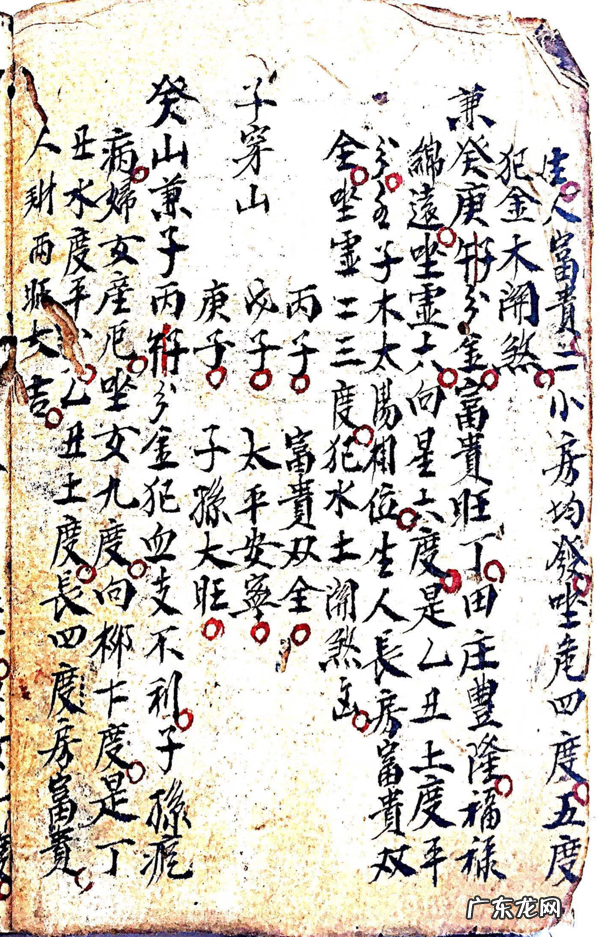 生人富貴二小房均發坐危四度五度
犯金木開煞
兼癸庚子分金富貴旺丁田庄豐隆福祿
綿遠坐虛六向星六度是乙丑土度平
分子木太陽相位生人長房富貴双
全坐虛二三度犯水土開煞凶
子穿山
丙子 富貴双全
戊子 太平安寧
庚子 子孫大旺
癸山兼子丙子分金犯血支不利子孫
病婦女產厄坐女九度向柳十度是丁
丑水度平分乙丑土度長四房富貴
人財両旺大吉
广东龙网